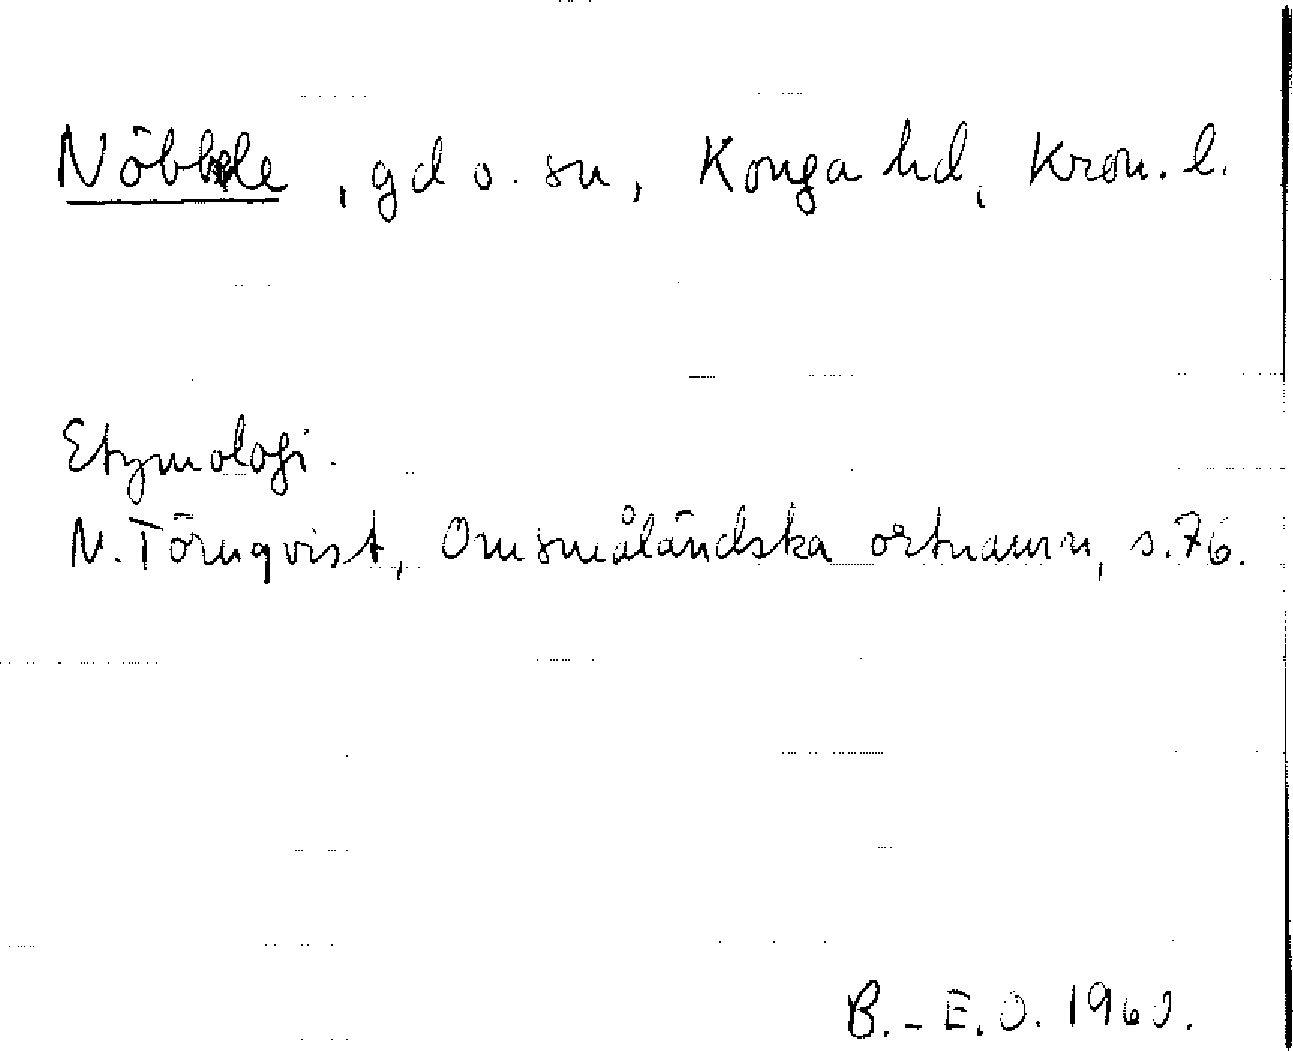 Nöbbele, gd o. sn, Konga hd, Kron. l.
Etymologi.
N. Törnqvist, Om småländska ortnamn, s. 76.
B.-E.O. 1960.